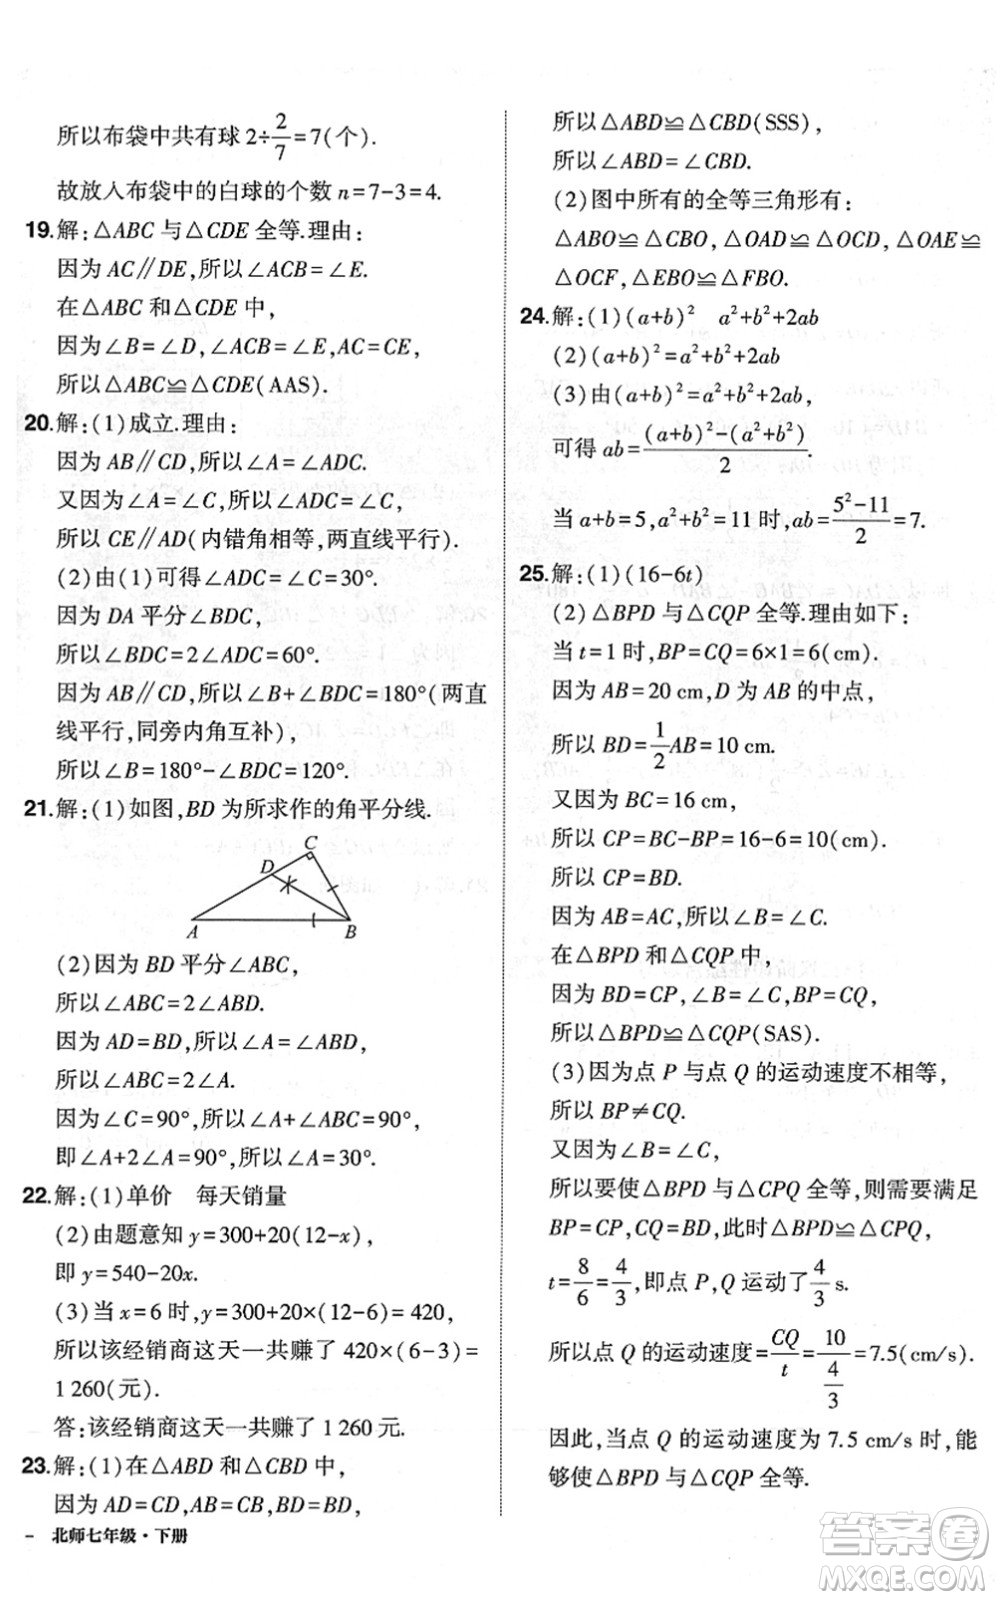 所以布袋中共有球 2÷2/7=7(个).
故放入布袋中的白球的个数 n=7-3=4.
19.解:△ABC 与△CDE 全等.理由:
因为 AC∥DE,所以∠ACB=∠E.
在△ABC 和△CDE 中,
因为∠B=∠D,∠ACB=∠E,AC=CE,
所以△ABC≌△CDE(AAS).
20.解:(1)成立.理由:
因为 AB∥CD,所以∠A=∠ADC.
又因为∠A=∠C,所以∠ADC=∠C,
所以 CE∥AD(内错角相等,两直线平行).
(2)由(1)可得∠ADC=∠C=30°.
因为 DA 平分∠BDC,
所以∠BDC=2∠ADC=60°.
因为 AB∥CD,所以∠B+∠BDC=180°(两直
线平行,同旁内角互补),
所以∠B=180°-∠BDC=120°.
21.解:(1)如图,BD 为所求作的角平分线.
C
D
A
B
(2)因为 BD 平分∠ABC,
所以∠ABC=2∠ABD.
因为 AD=BD,所以∠A=∠ABD,
所以∠ABC=2∠A.
因为∠C=90°,所以∠A+∠ABC=90°,
即∠A+2∠A=90°,所以∠A=30°.
22.解:(1)单价 每天销量
(2)由题意知 y=300+20(12-x),
即 y=540-20x.
(3)当 x=6 时,y=300+20×(12-6)=420,
所以该经销商这天一共赚了 420×(6-3)=
1 260(元).
答:该经销商这天一共赚了 1 260 元.
23.解:(1)在△ABD 和△CBD 中,
因为 AD=CD,AB=CB,BD=BD,
- 北师七年级·下册
所以△ABD≌△CBD(SSS),
所以∠ABD=∠CBD.
(2)图中所有的全等三角形有:
△ABO≌△CBO,△OAD≌△OCD,△OAE≌
△OCF,△EBO≌△FBO.
24.解:(1)(a+b)² a²+b²+2ab
(2)(a+b)²=a²+b²+2ab
(3)由(a+b)²=a²+b²+2ab,
可得 ab=((a+b)²-(a²+b²))/2.
当 a+b=5,a²+b²=11 时,ab=(5²-11)/2=7.
25.解:(1)(16-6t)
(2)△BPD 与△CQP 全等.理由如下:
当 t=1 时,BP=CQ=6×1=6(cm).
因为 AB=20 cm,D 为 AB 的中点,
所以 BD=1/2AB=10 cm.
又因为 BC=16 cm,
所以 CP=BC-BP=16-6=10(cm),
所以 CP=BD.
因为 AB=AC,所以∠B=∠C.
在△BPD 和△CQP 中,
因为 BD=CP,∠B=∠C,BP=CQ,
所以△BPD≌△CQP(SAS).
(3)因为点 P 与点 Q 的运动速度不相等,
所以 BP≠CQ.
又因为∠B=∠C,
所以要使△BPD 与△CPQ 全等,则需要满足
BP=CP,CQ=BD,此时△BPD≌△CPQ,
t=8/6=4/3,即点 P,Q 运动了4/3 s.
所以点 Q 的运动速度=CQ/t=10/(4/3)=7.5(cm/s).
因此,当点 Q 的运动速度为 7.5 cm/s 时,能
够使△BPD 与△CQP 全等.
答案圈
MXQE.COM